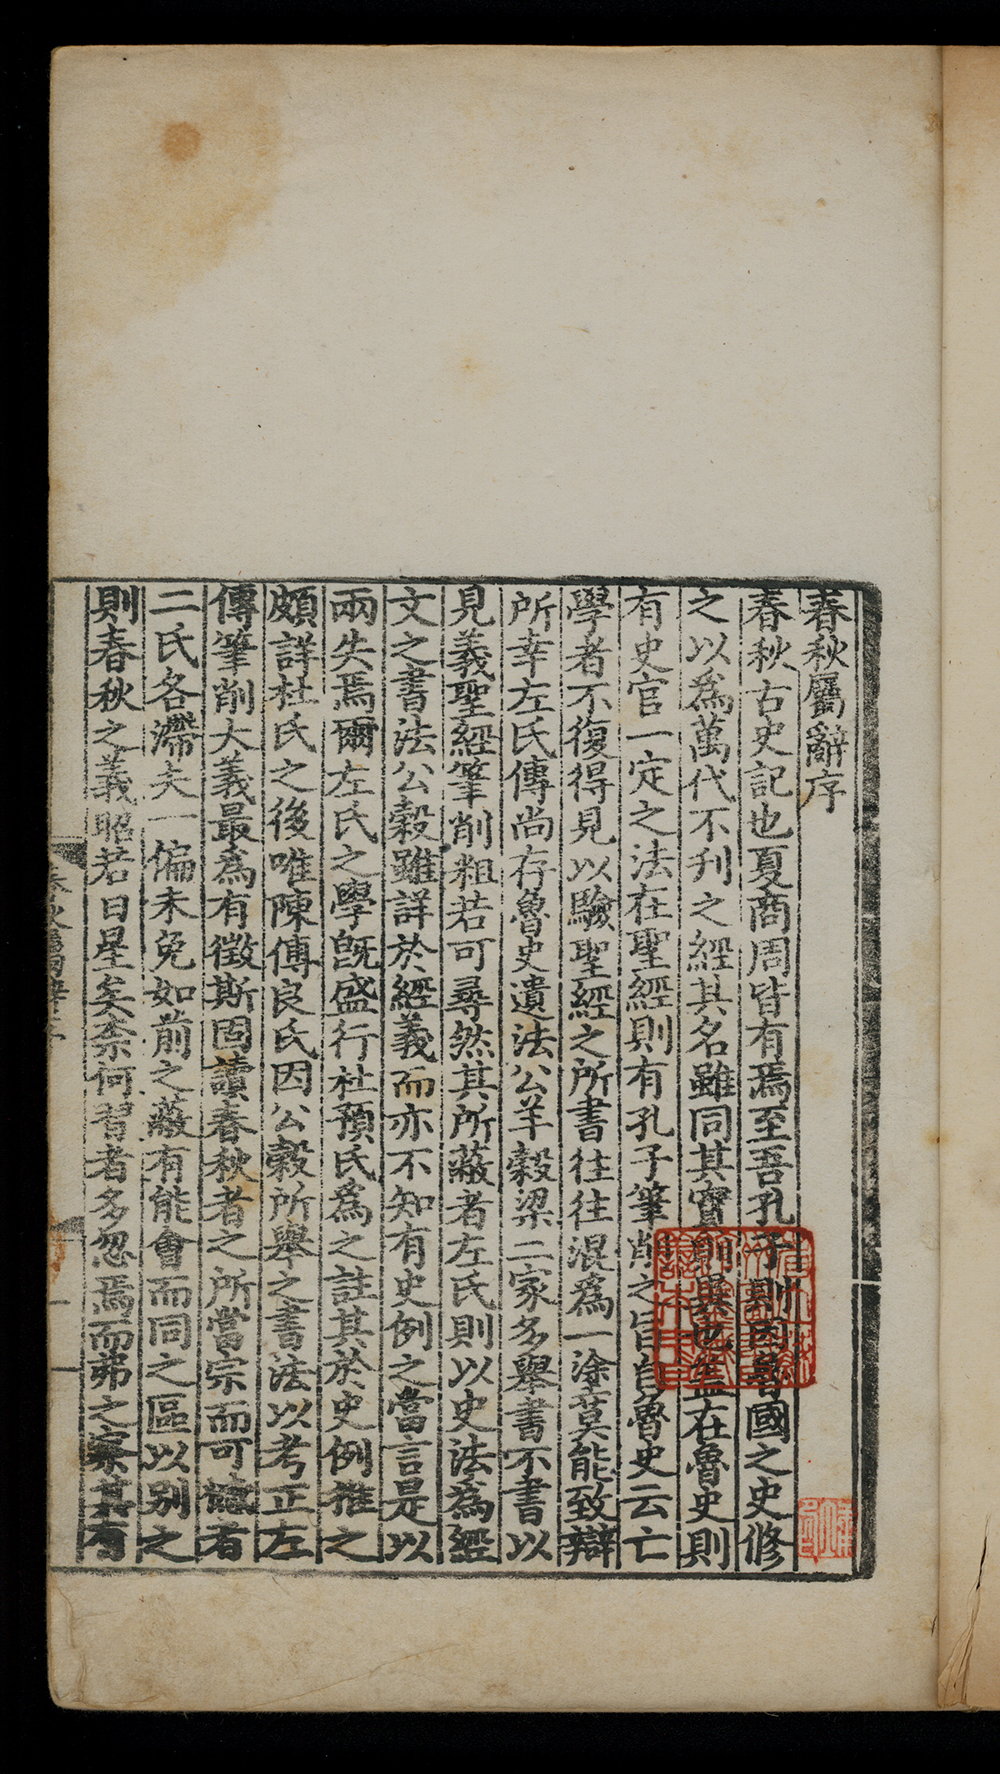 春秋屬辭序
春秋古史記也夏商周皆有焉至吾孔子則因魯國之史修
之以爲萬代不刋之經其名雖同其實則異也蓋在魯史則
有史官一定之法在聖經則有孔子筆削之旨自魯史云亡
學者不復得見以驗聖經之所書往往混爲一塗莫能致辯
所幸左氏傳尚存魯史遺法公羊穀梁二家多舉書不書以
見義聖經筆削粗若可尋然其所蔽者左氏則以史法爲經
文之書法公穀雖詳於經義而亦不知有史例之當言是以
兩失焉爾左氏之學旣盛行杜預氏爲之註其於史例推之
頗詳杜氏之後唯陳傅良氏因公穀所舉之書法以考正左
傳筆削大義最爲有徵斯固讀春秋者之所當宗而可憾者
二氏各滯夫一偏未免如前之蔽有能會而同之區以别之
則春秋之義昭若日星矣柰何習者多忽焉而弗之察其有